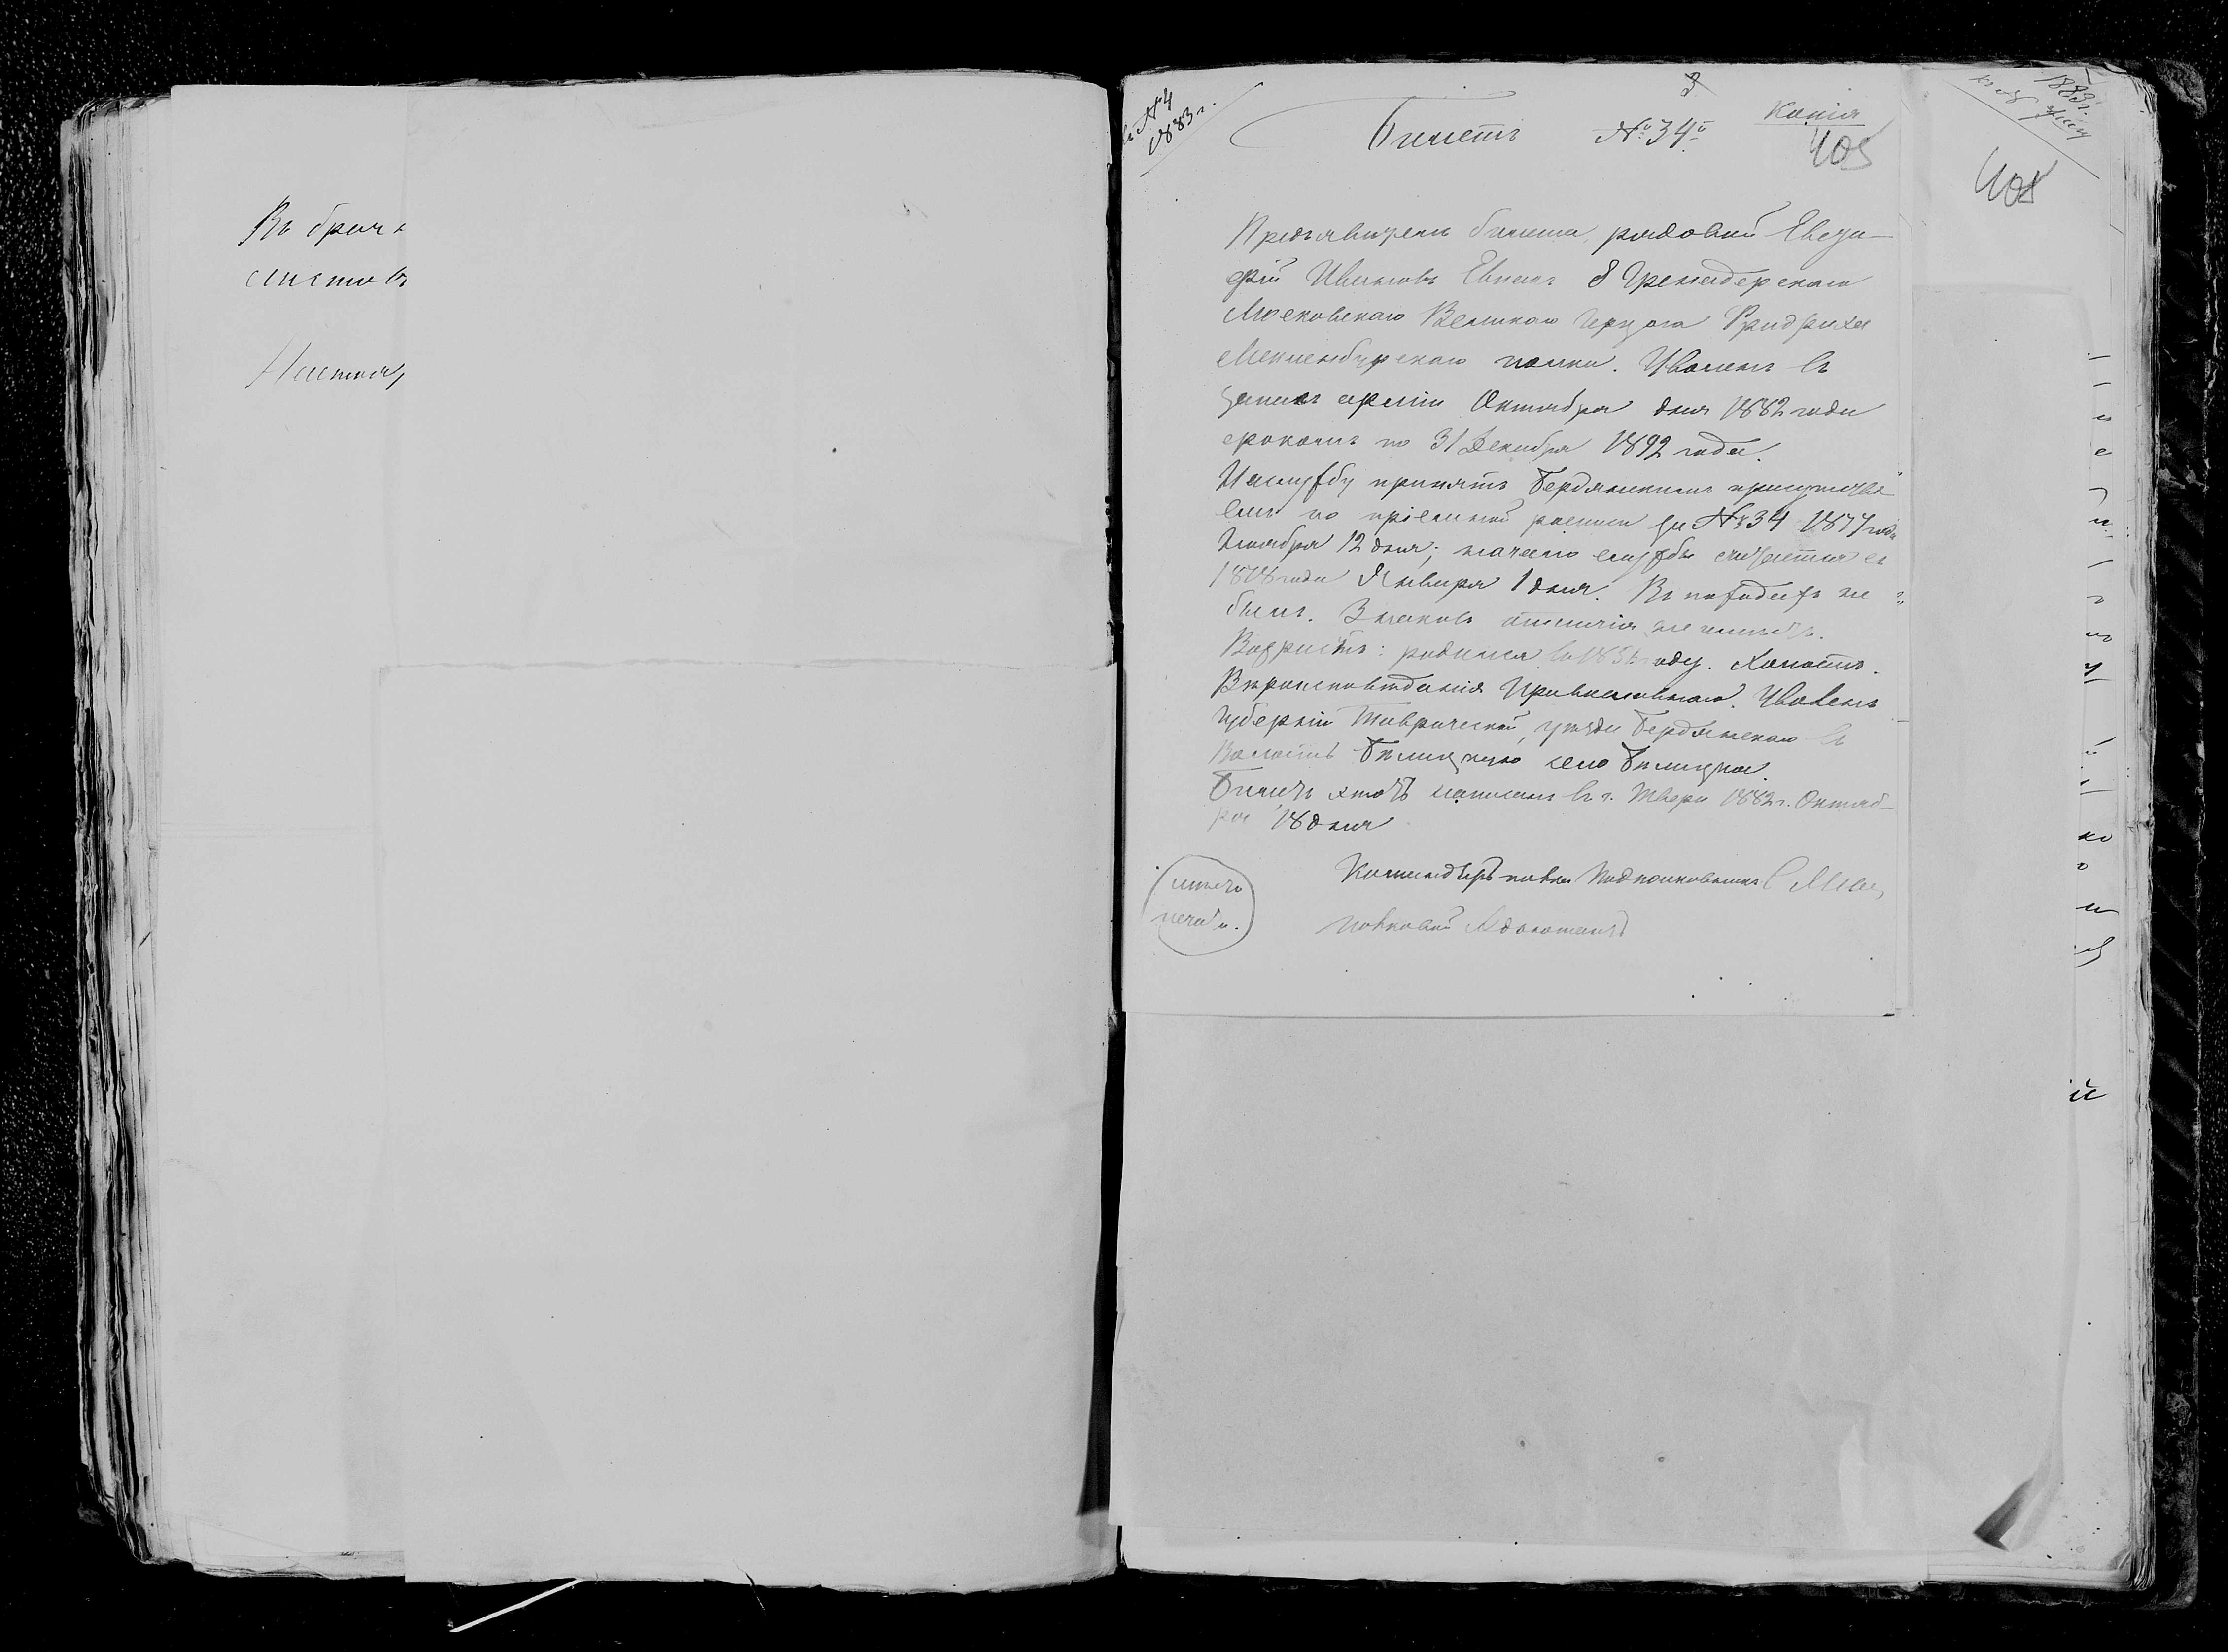 Въ брачн
листовъ
къ № 4
1883 г.
3
Копія
Билетъ № 34й
405
Предъявитель билета, рядовой Евста-
фій Ивановъ 8 Гренадерскаго
Московскаго Великаго Герцога Фридриха
Мекленбургскаго полка. Уволенъ въ
запасъ арміи Октября дня 1882 года
срокомъ по 31 Декабря 1892 года.
На службу принятъ Бердянскимъ присутстві
емъ по пріемной росписи за № 34 1877 года
Ноября 12 дня; начало службы считается съ
1878 года Января 1 дня. Въ походахъ не
былъ. Знаковъ отличія не имѣетъ.
Возрастъ: родился году. Холостъ.
Вѣроисповѣданія Православнаго. Уволенъ
Губерніи Таврической, уѣзда Бердянскаго въ
Волость село
Билетъ этотъ написанъ въ г. Твери 1882 г. Октяб-
ря 18 дня
Командиръ полка Подполковникъ
Полковой Адъютантъ
мѣсто
печати.
405